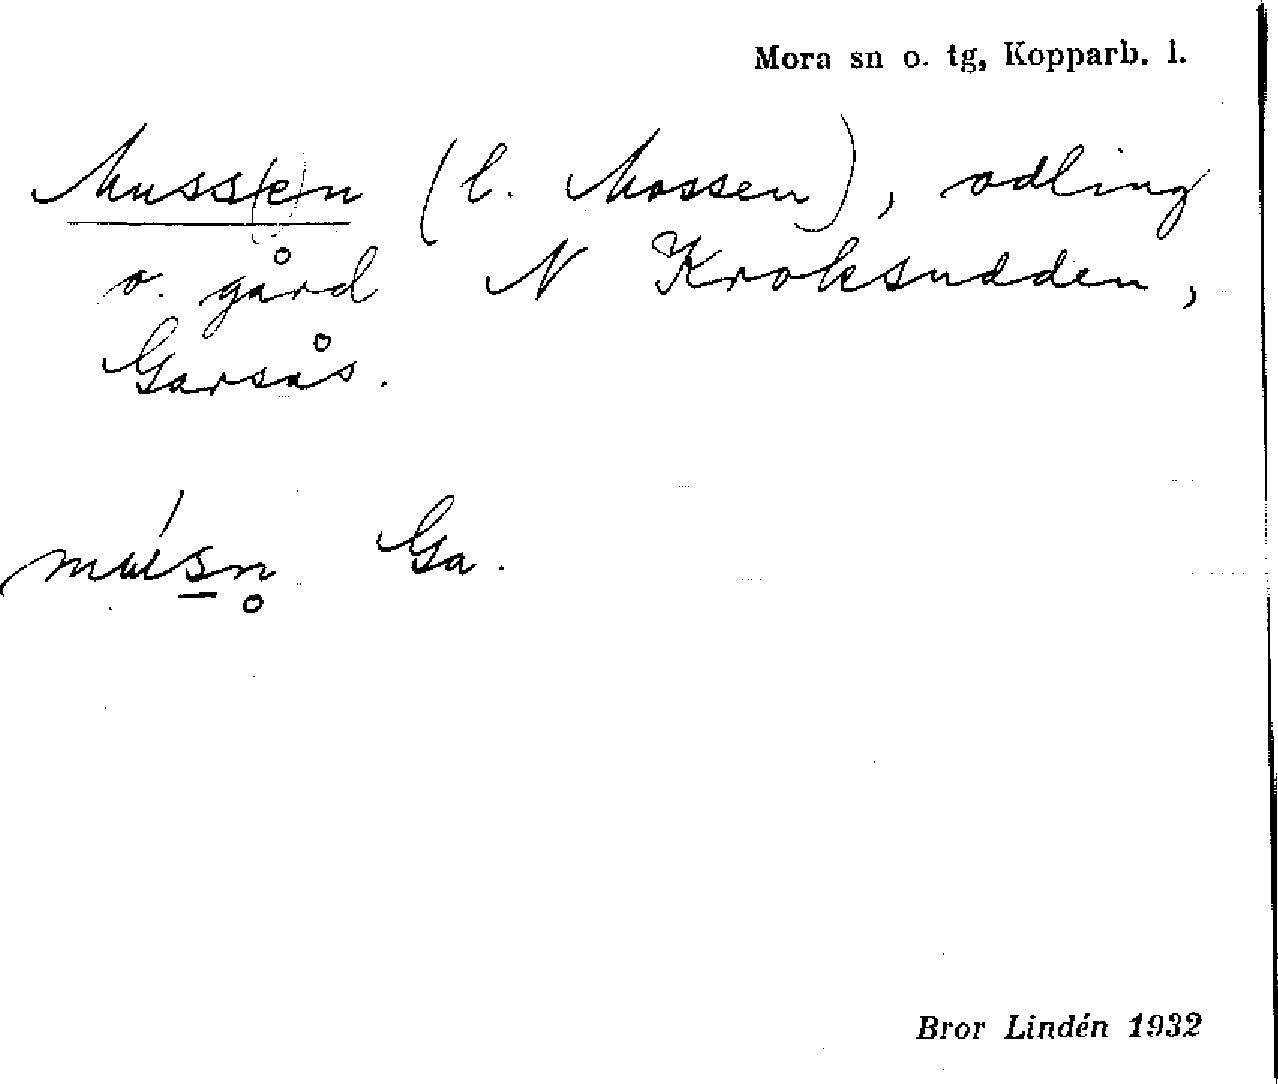 Mora sn o. tg, Kopparb. l.
Muss(e)n (l. Mossen), odling
o. gård N Kroksudden,
Garsås.
mús̲n̥ Ga.
Bror Lindén 1932